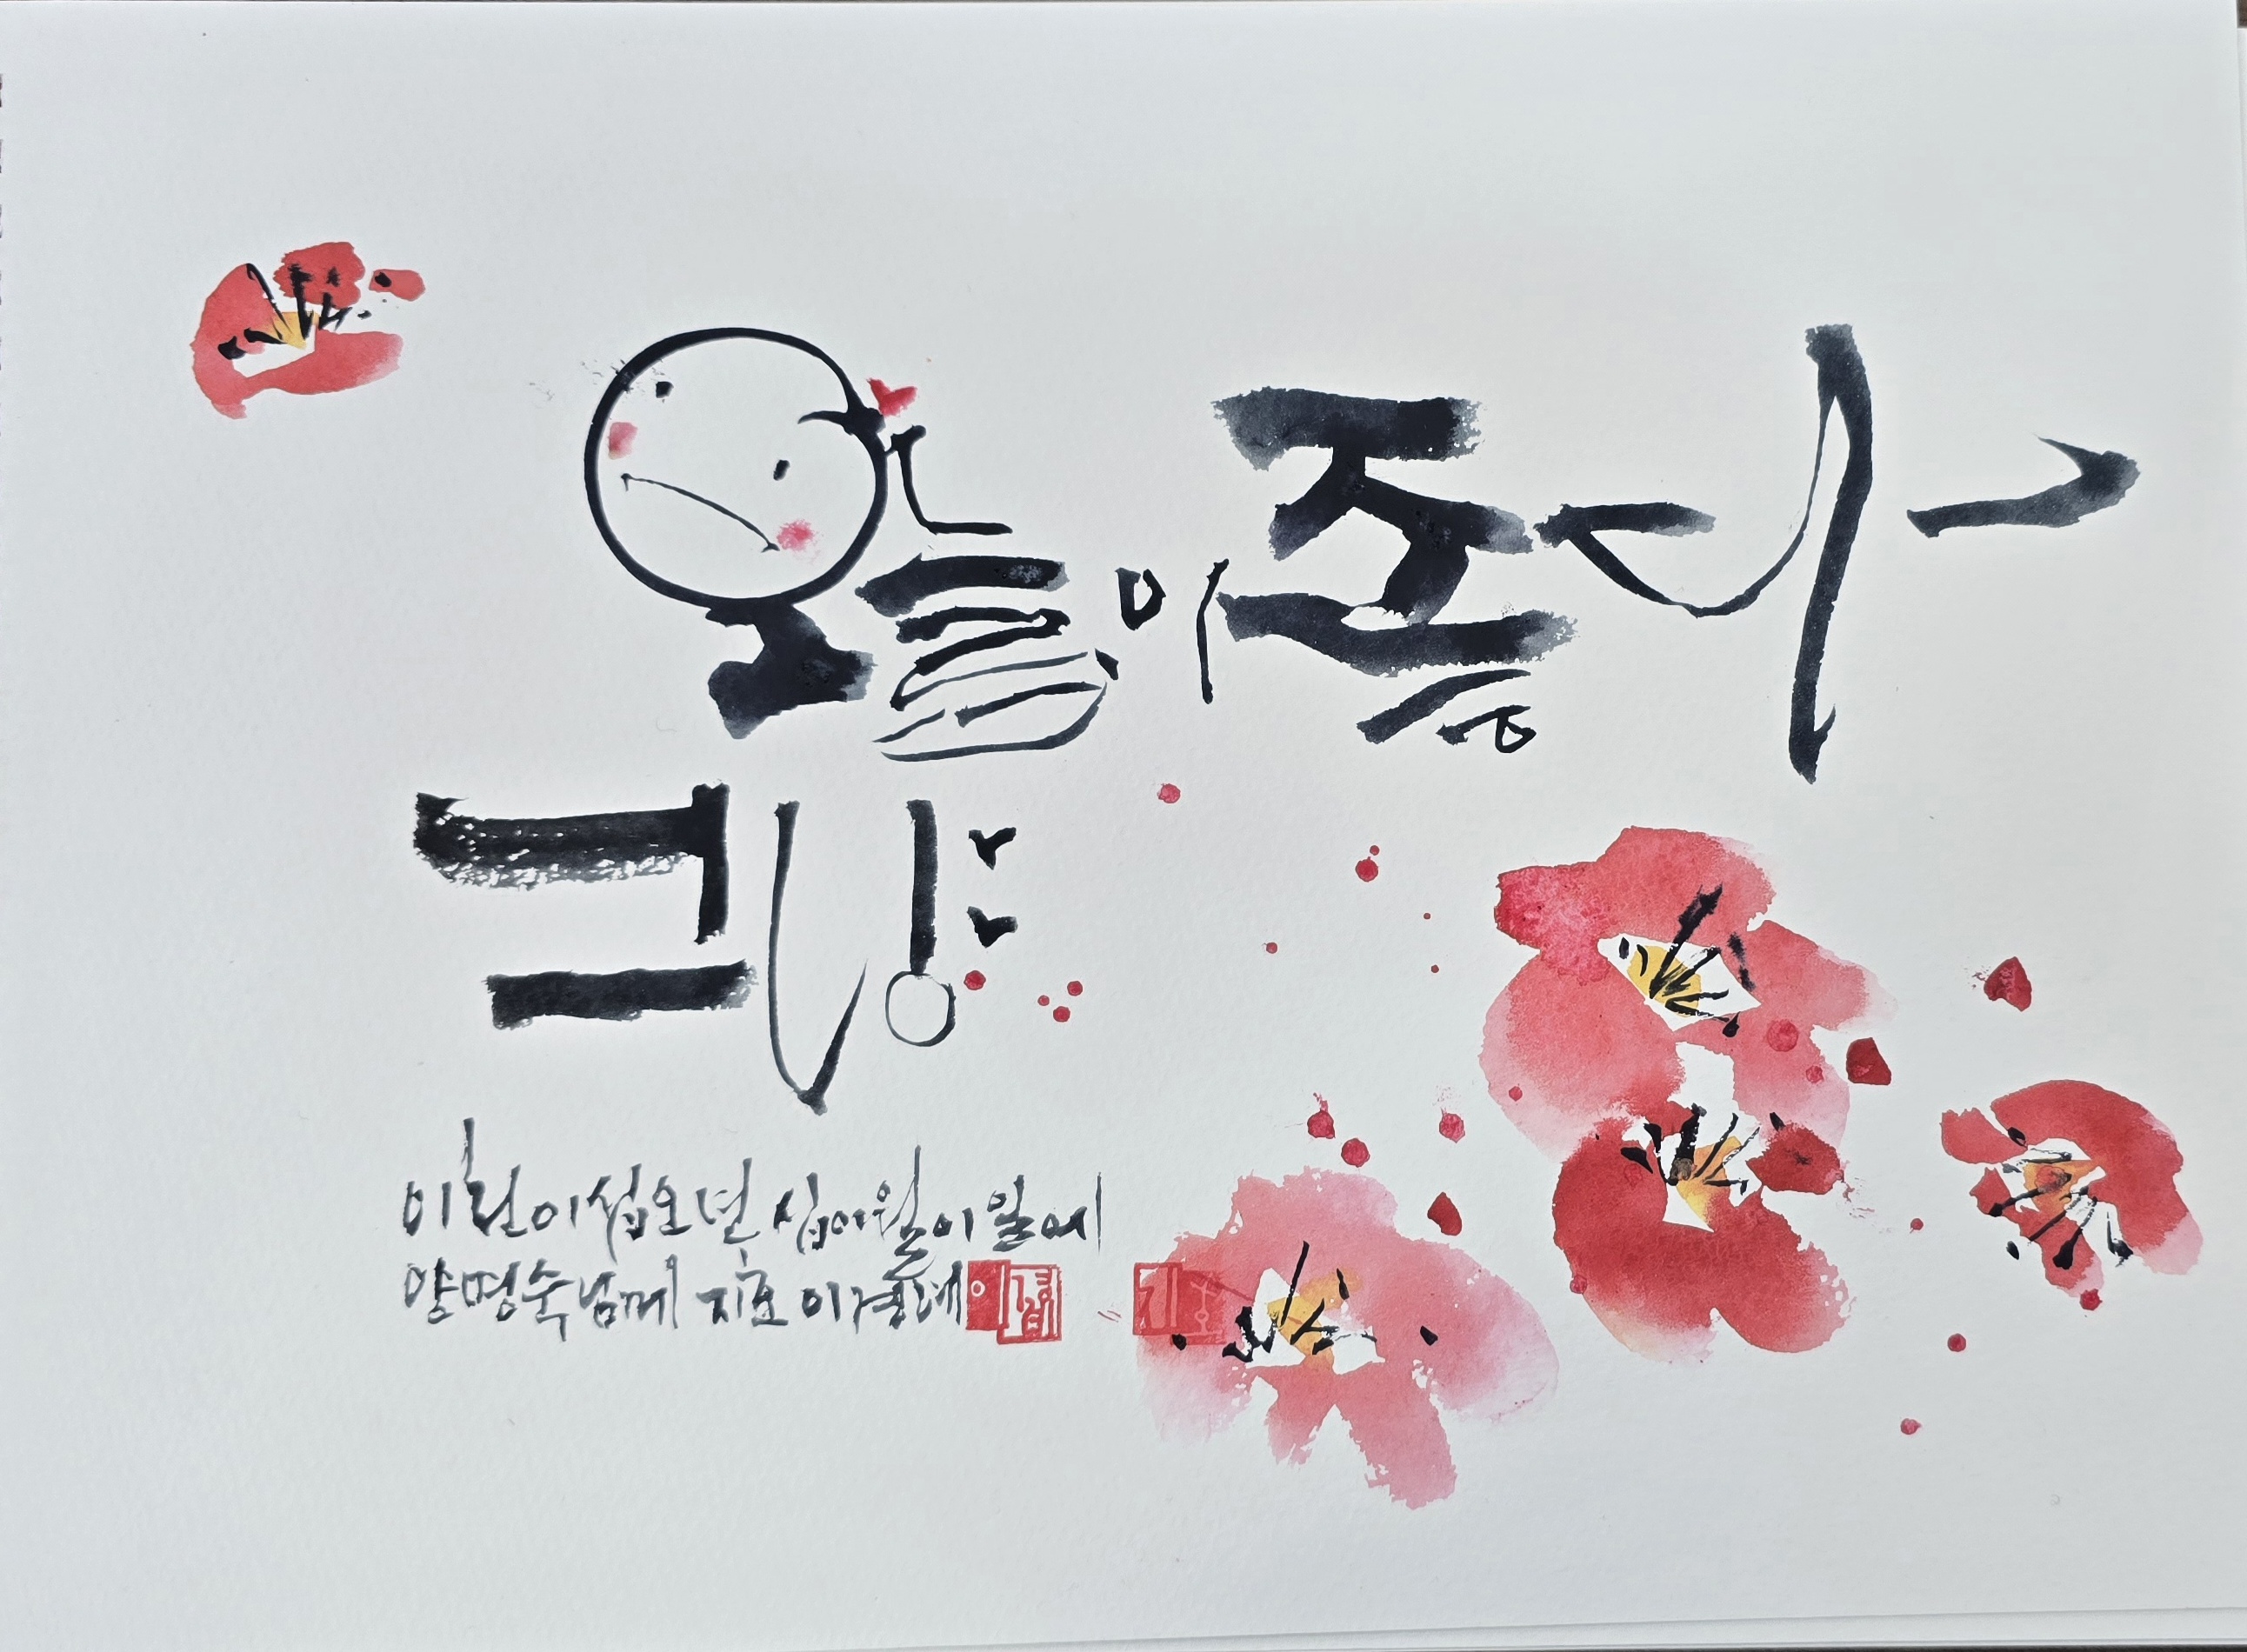 오늘이 좋다
그냥
이천이십오년 십이월이일에
양명숙님께 이경